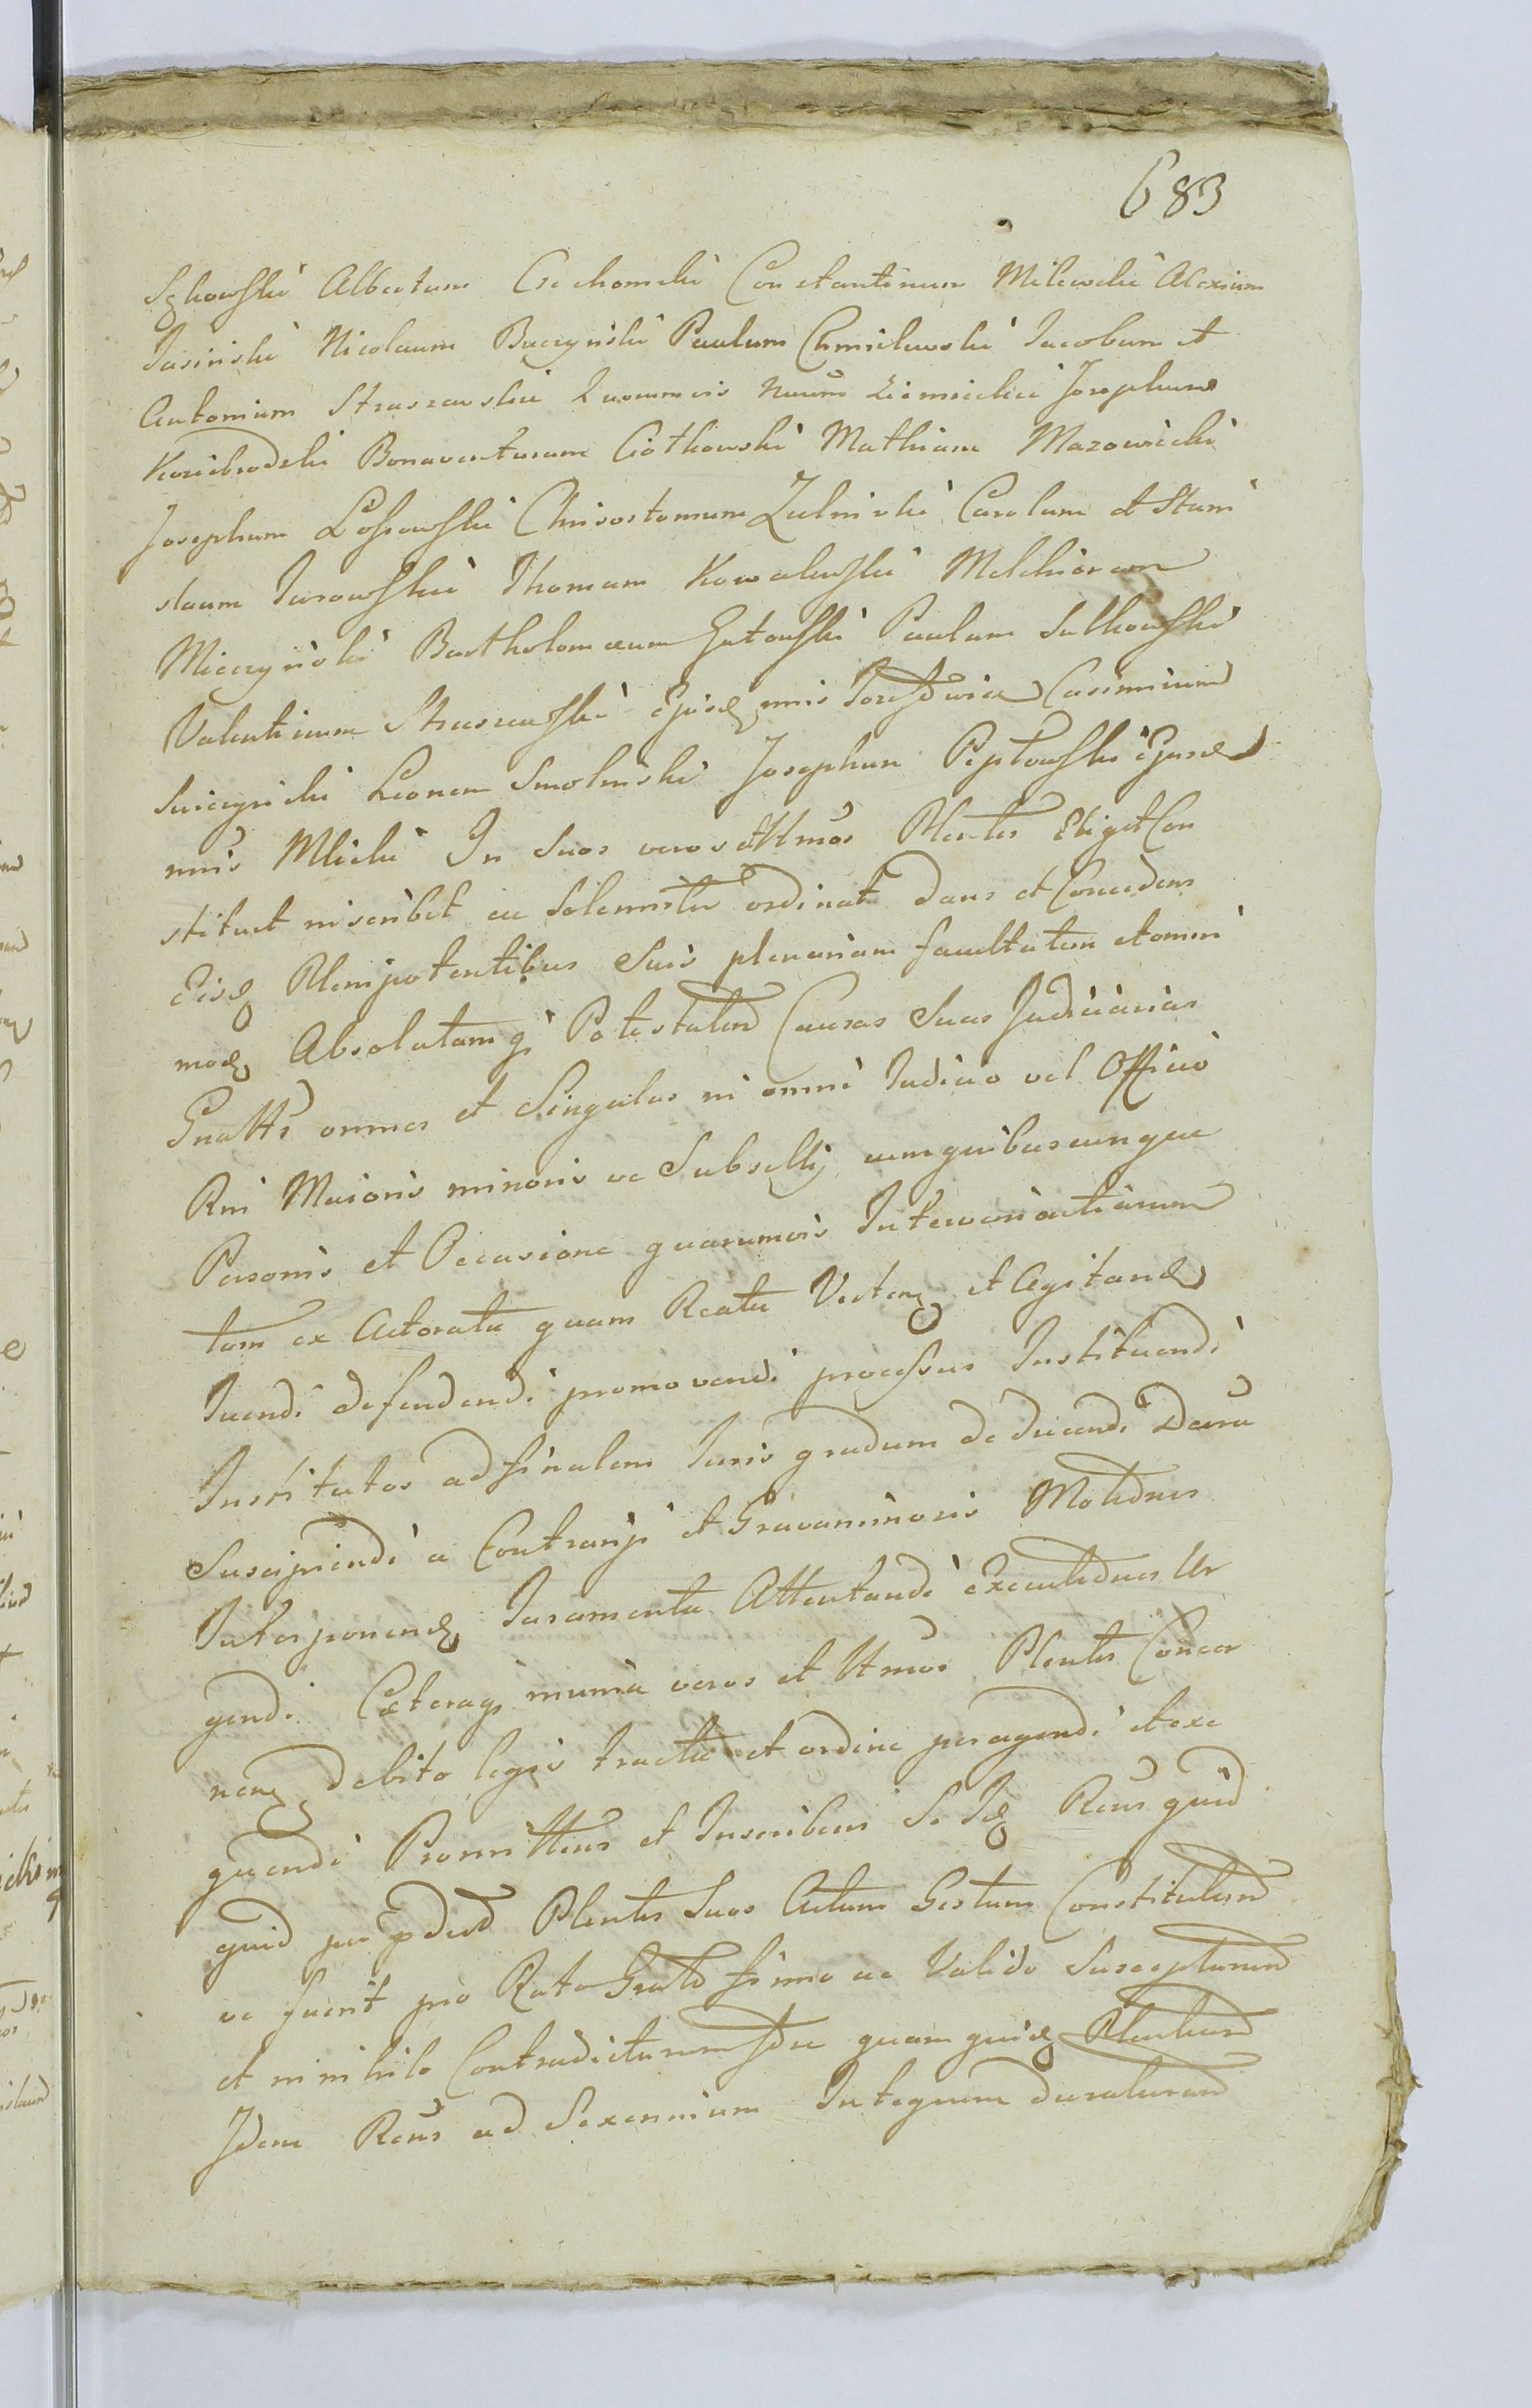 683
Albertum Czechomski Constantinum Milewski Alexium
Jasinski Nicolaum Buczynski Paulum Chmielewski Jacobum et
Antonium Straszewskie quorumvis Ziemiecki Josephum
Koziebrodzki Bonaventuram Ciotkowski Mathiam Mazowiecki
Josephum Lossowski Chrisostomum Zulinski Carolum et Stani
slaum Jurowskie Thomam Kowalewski Melchiorem
Miączynski Bartholomæum Gutowski Paulum Sulkowski
Valentinum Straszewski Casimirum
Leonem Smolinski Josephum Peplowski
In Suos veros et Plentes Eligit Con
stituit inscribit ac Solemniter ordinat Dans et Concedens
Plenipotentibus Suis plenariam facultatem et omni
mod Absolutamq Potestatem Causas Suas Judiciarias
omnes et Singulas in omni Judicio vel Officio
Rni Maioris minoris ve Subsellij cum quibuscunque
Personis et Occasione quarumvis Interven actiarum
tam ex Actoratu quam Reatu Verten et Agitand
Tuendi defendendi promovendi processus Instituendi
Institutos ad finalem Juris gradum deducendi Decreta
Suscipiendi a Contrarijs et Gravaminosis Motiones
Interponend Juramenta Attentandi Executiones Ur
gendi Cæteraq munia veros et Plentes Concer
nen debito legis tractu et ordine peragendi et exe
quendi Promittens et Inscribens Se Reus quid
quid per Plentes Suos Actum Gestum Constitutum
ve fuerit pro Rato Grato firmo ac Valido Suscepturum
et in nihilo Contradicturum quam
Idem Reus ad Sexennium Integrum duraturam